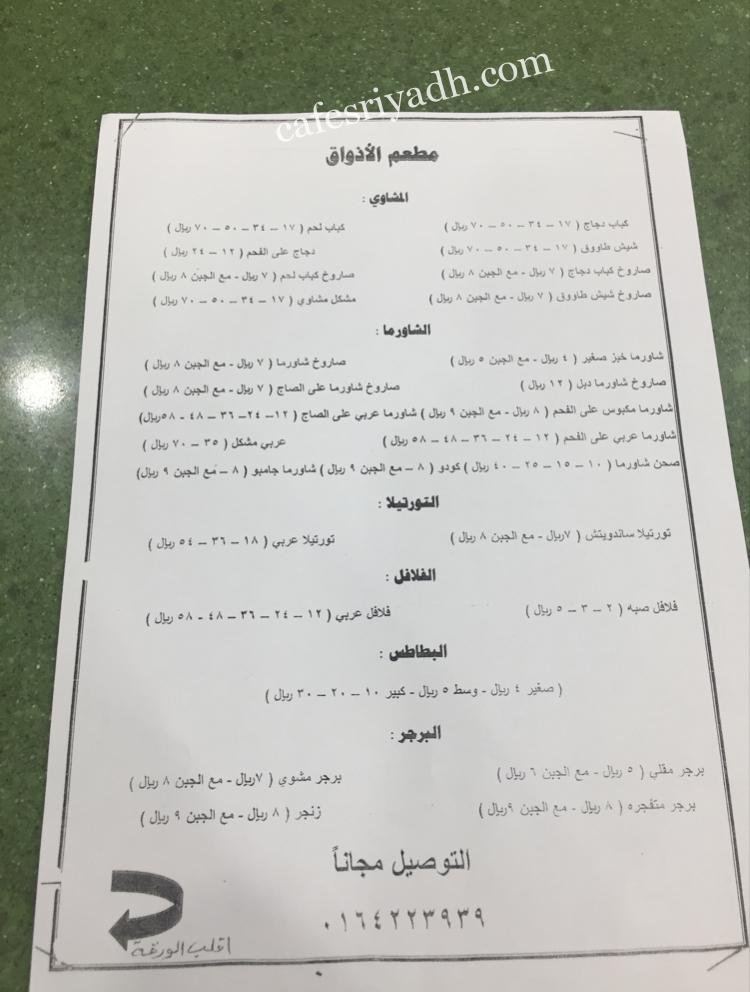 cafesriyadh.com
مطعم الأذواق
المشاوي :
كباب دجاج ( ١٧ – ٣٤ – ٥٠ – ٧٠ ريال ) كباب لحم ( ١٧ – ٣٤ – ٥٠ – ٧٠ ريال )
شيش طاووق ( ١٧ – ٣٤ – ٥٠ – ٧٠ ريال ) دجاج على الفحم ( ١٢ – ٢٤ ريال )
صاروخ كباب دجاج ( ٧ ريال - مع الجبن ٨ ريال ) صاروخ كباب لحم ( ٧ ريال - مع الجبن ٨ ريال )
صاروخ شيش طاووق ( ٧ ريال - مع الجبن ٨ ريال ) مشكل مشاوي ( ١٧ – ٣٤ – ٥٠ – ٧٠ ريال )
الشاورما :
شاورما خبز صغير ( ٤ ريال - مع الجبن ٥ ريال ) صاروخ شاورما ( ٧ ريال - مع الجبن ٨ ريال )
صاروخ شاورما دبل ( ١٢ ريال ) صاروخ شاورما على الصاج ( ٧ ريال - مع الجبن ٨ ريال )
شاورما مكبوس على الفحم ( ٨ ريال - مع الجبن ٩ ريال ) شاورما عربي على الصاج ( ١٢ – ٢٤ – ٣٦ – ٤٨ - ٥٨ريال)
شاورما عربي على الفحم ( ١٢ – ٢٤ – ٣٦ – ٤٨ – ٥٨ ريال ) عربي مشكل ( ٣٥ – ٧٠ ريال )
صحن شاورما ( ١٠ – ١٥ – ٢٥ – ٤٠ ريال ) كودو ( ٨ – مع الجبن ٩ ريال ) شاورما جامبو ( ٨ – مع الجبن ٩ ريال)
التورتيلا :
تورتيلا ساندويتش ( ٧ريال - مع الجبن ٨ ريال ) تورتيلا عربي ( ١٨ – ٣٦ – ٥٤ ريال )
الفلافل :
فلافل صبه ( ٢ – ٣ – ٥ ريال ) فلافل عربي ( ١٢ – ٢٤ – ٣٦ – ٤٨ - ٥٨ ريال )
البطاطس :
( صغير ٤ ريال - وسط ٥ ريال - كبير ١٠ – ٢٠ – ٣٠ ريال )
البرجر :
برجر مقلي ( ٥ ريال - مع الجبن ٦ ريال ) برجر مشوي ( ٧ريال - مع الجبن ٨ ريال )
برجر متفجره ( ٨ ريال - مع الجبن ٩ريال ) زنجر ( ٨ ريال - مع الجبن ٩ ريال )
التوصيل مجاناً
٠١٦٤٢٢٣٩٣٩
اقلب الورقة